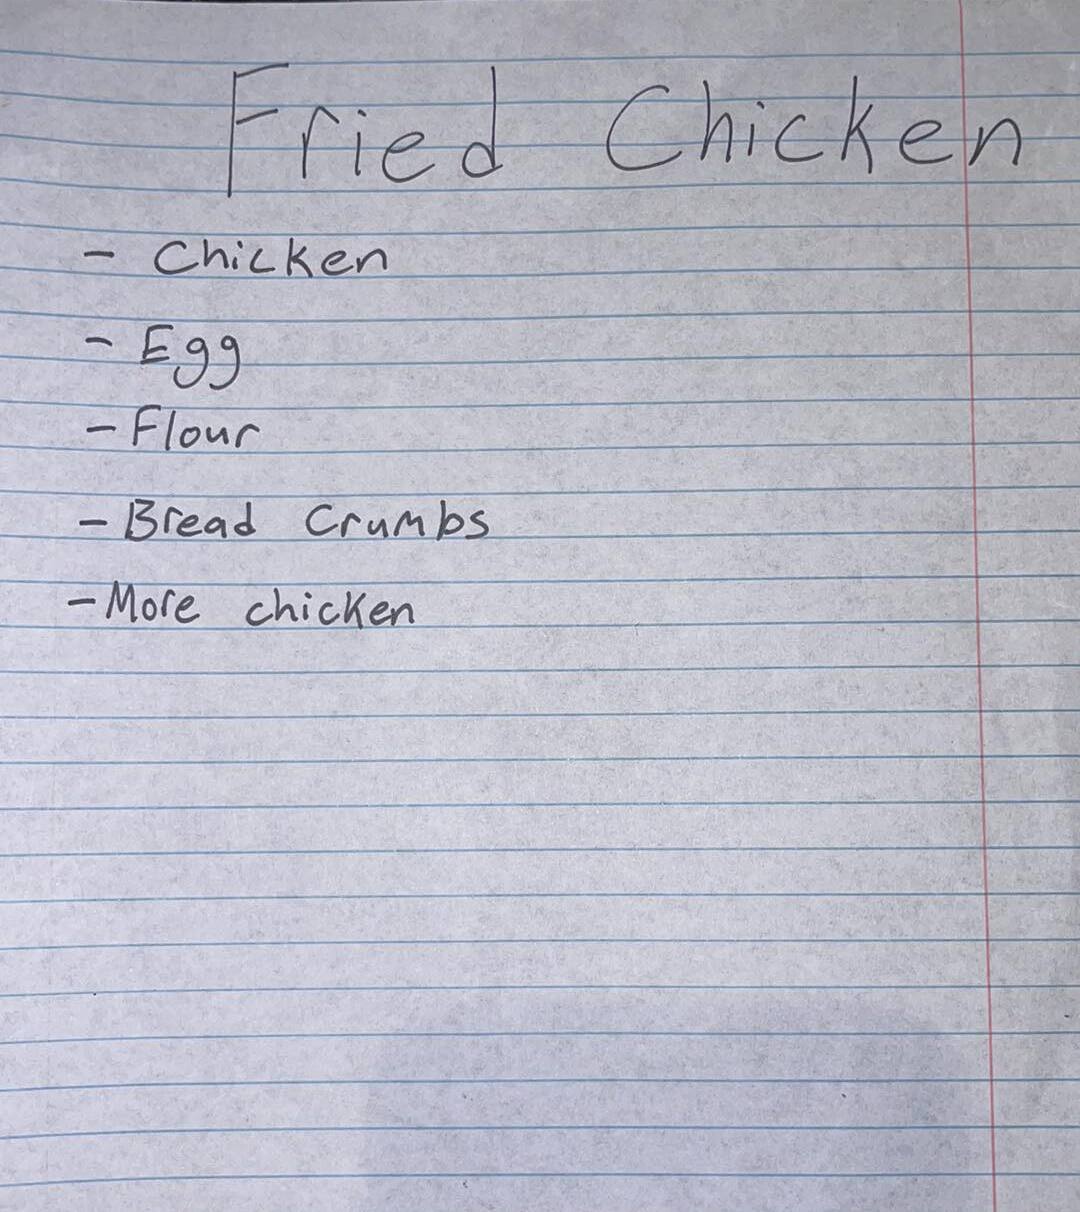 Fried Chicken
- Chicken
- Egg
- Flour
- Bread Crumbs
- More chicken